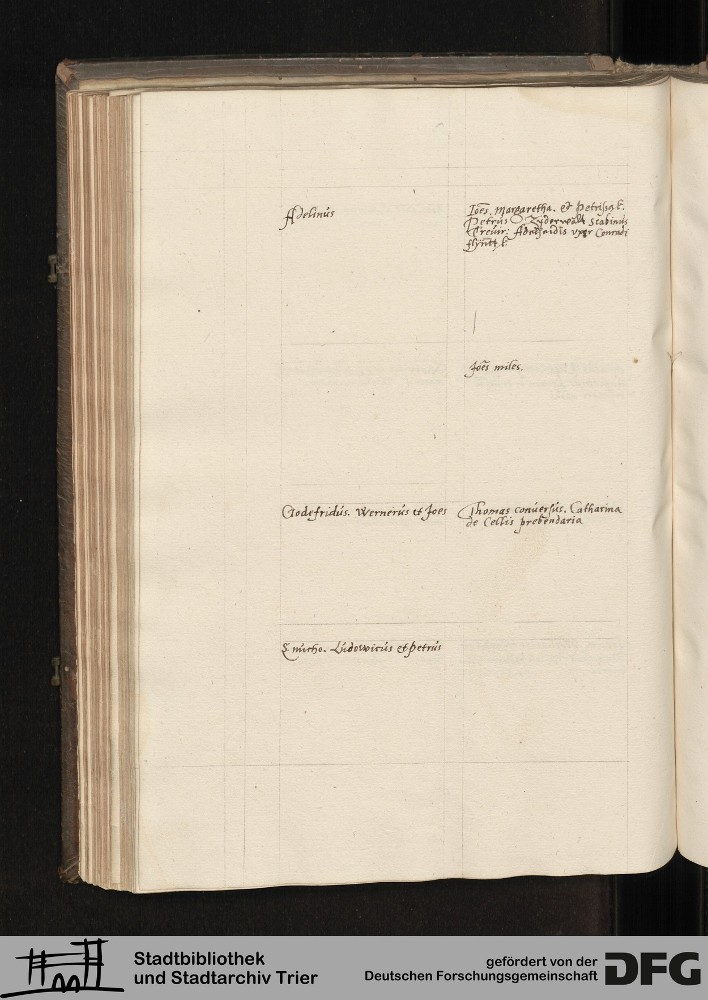 Adelinús
Joēs. Margaretha. et Petrissa l.
Petrús Zyderwalt scabinús
Treuir: Adelheidis vxor Conradi
flyntt l.
Joēs miles.
Godefridús. Wernerús et Joes
Thomas conuersus. Catharina
de Cellis prebendaria
Emicho. Lúdowicús et Petrús
Stadtbibliothek
und Stadtarchiv Trier
gefördert von der
Deutschen Forschungsgemeinschaft
DFG